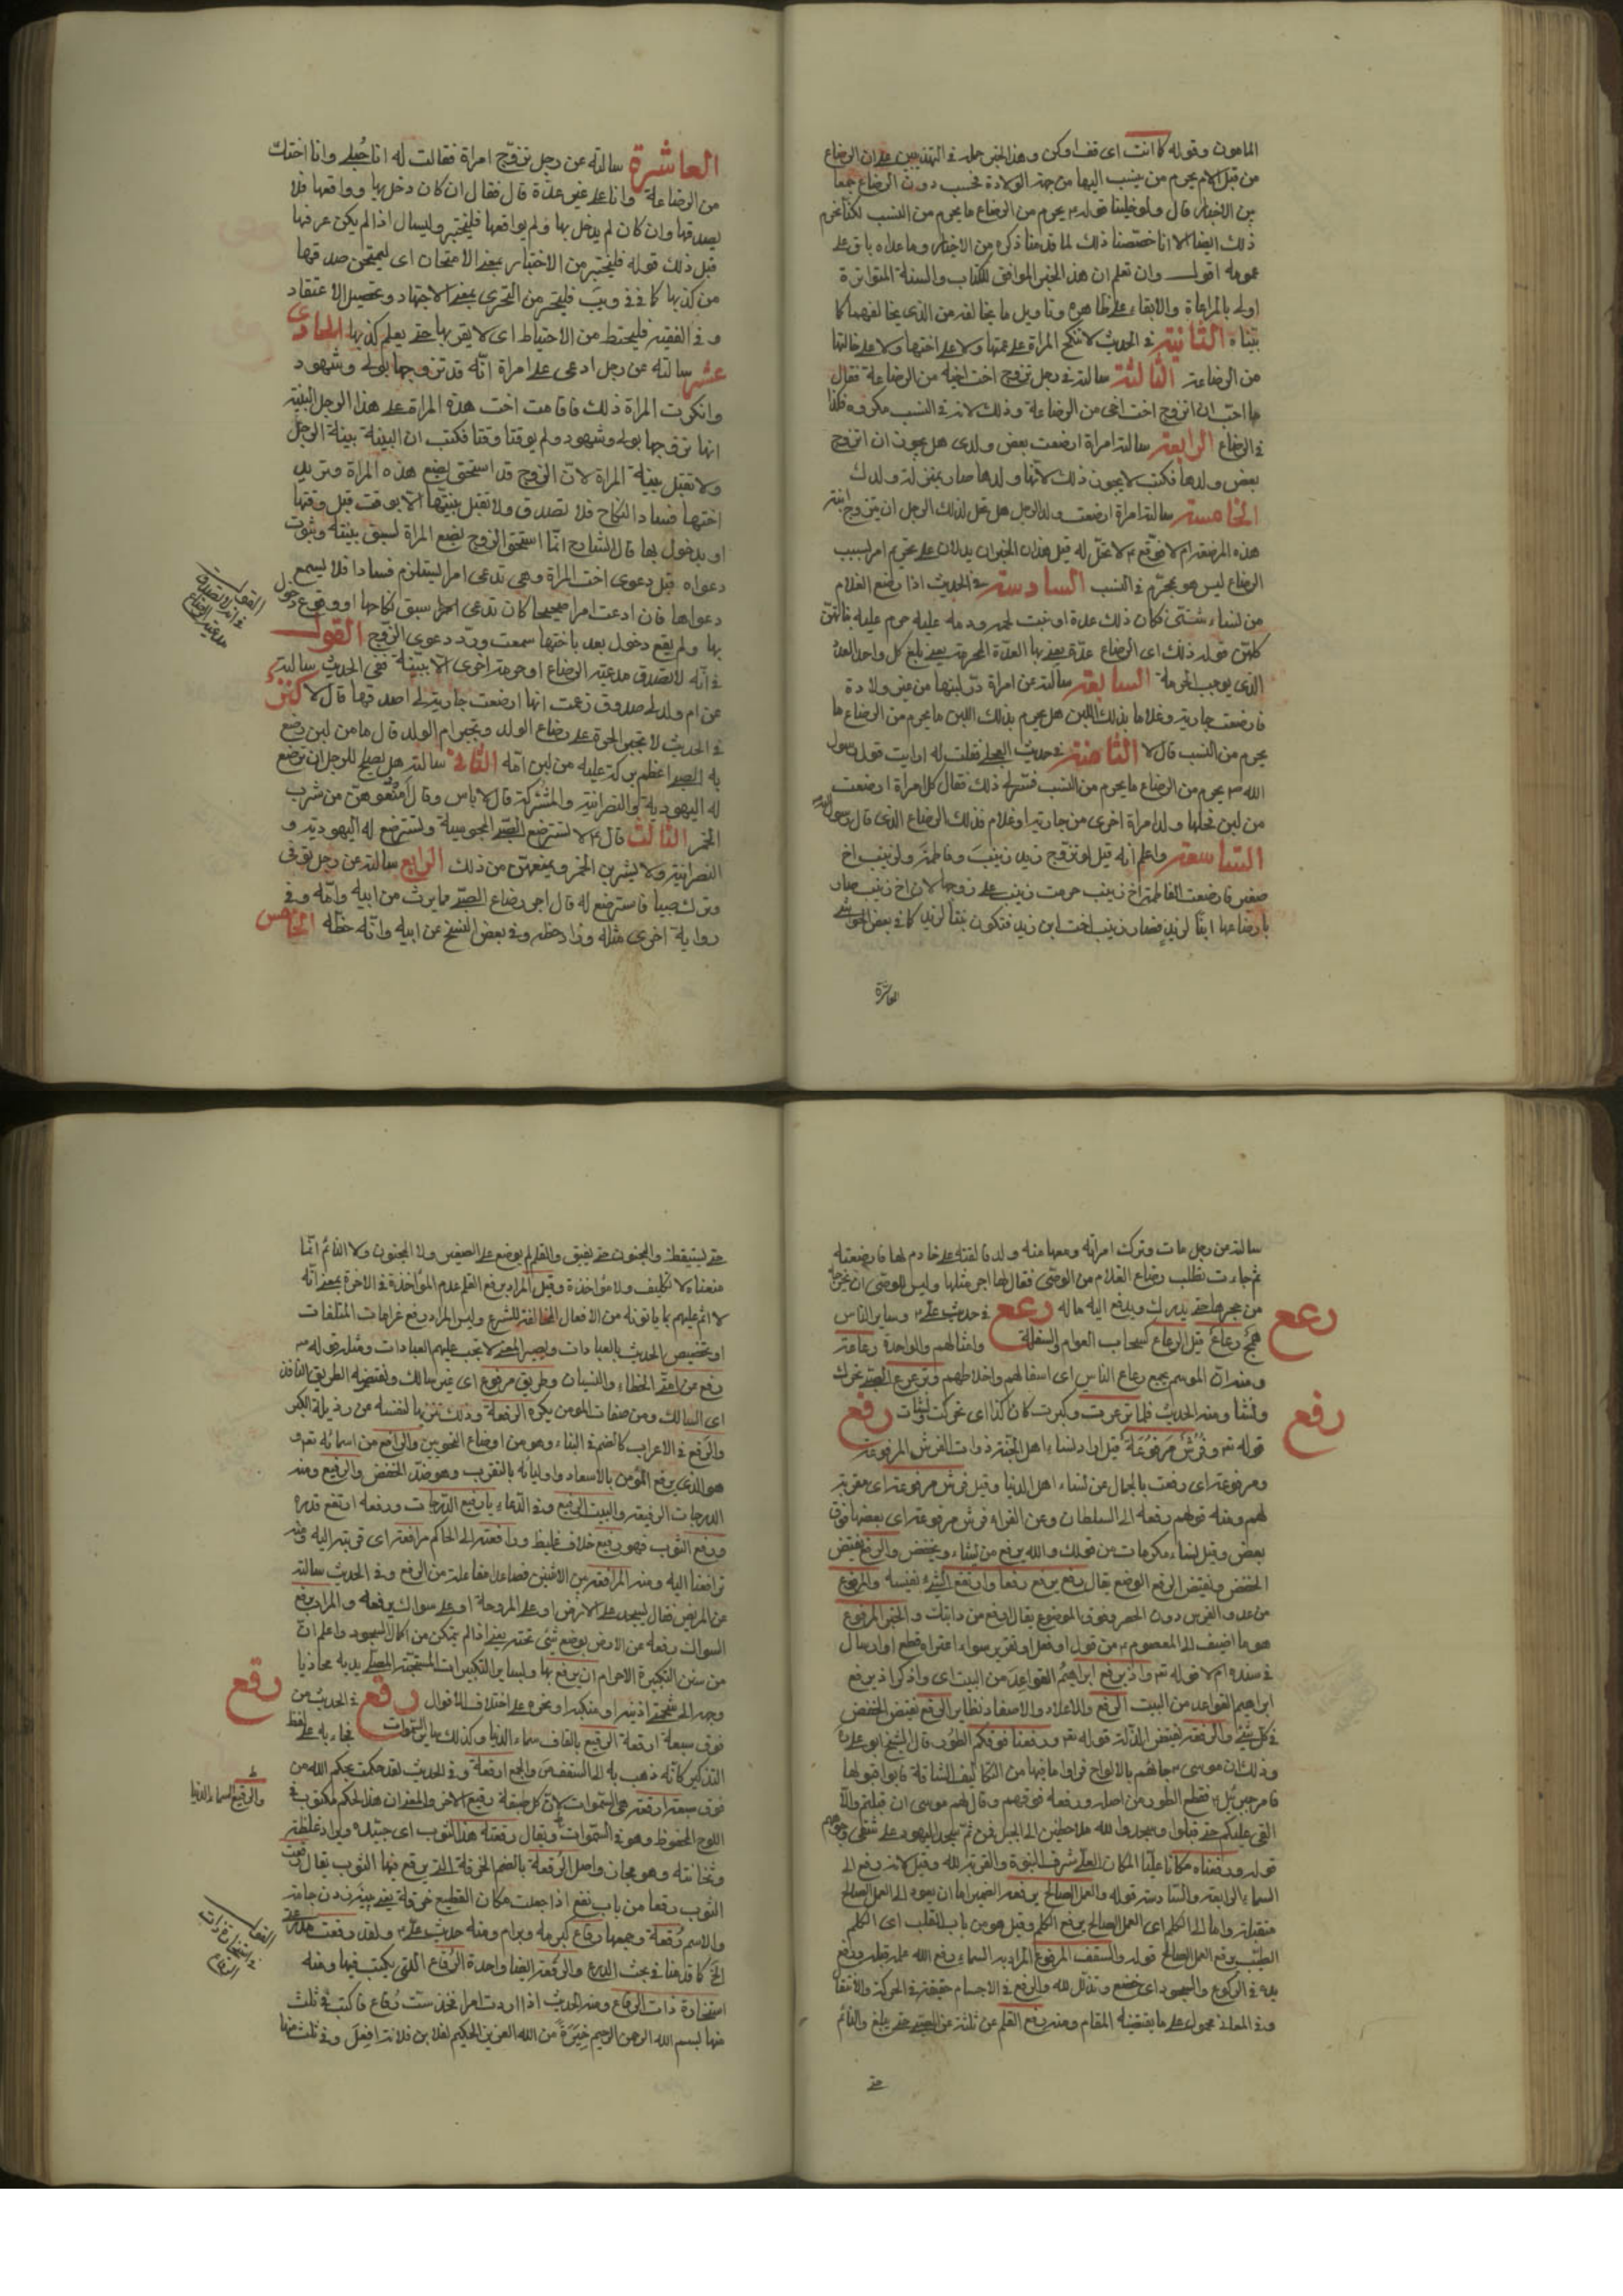 المامون وقوله كما انت اى قف اوكن وهذا الخبر حمله في التهذيبين على ان الرضاع
من قبل الام يحرم من ينسب اليها من جهة الولادة فحسب دون الرضاع جمعا
بين الاخبار قال ولو خلينا قوله ع يحرم من الرضاع ما يحرم من النسب لكنا نحرم
ذلك ايضا الا انا خصصنا ذلك لما قدمنا ذكره من الاخبار وما عداه باق على
عمومه اقول وان تعلم ان هذا الخبر الموافق للكتاب والسنة المتواترة
اولى بالمراعاة والابقاء على ظاهره وتاويل ما يخالفه من الذى يخالفهما كما
بيناه الثانية في الحديث لا تنكح المراة على عمتها ولا على اختها ولا على خالتها
من الرضاعة الثالثة سالته في رجل تزوج اخت اخيه من الرضاعة فقال
ما احب ان اتزوج اخت اخى من الرضاعة وذلك لانه في النسب مكروه فكذا
في الرضاع الرابعة سالته امراة ارضعت بعض ولدى هل يجوز ان اتزوج
بعض ولدها فكتب لا يجوز ذلك لانها ولدها صار بمنزلة ولدك
الخامسة سالته امراة ارضعت ولد الرجل هل يحل لذلك الرجل ان يتزوج ابنة
هذه المرضعة ام لا فوقع ع لا تحل له قيل هذان الخبران يدلان على تحريم امر بسبب
الرضاع ليس هو بمحرم في النسب السادسة في الحديث اذا رضع الغلام
من نساء شتى فكان ذلك عدة او نبت لحمه ودمه عليه حرم عليه بناتهن
كلهن قوله ذلك اى الرضاع عدة يعنى بها العدة المحرمة يعنى بلغ كل واحد العدد
الذى يوجب الحرمة السابعة سالته عن امراة در لبنها من غير ولادة
فارضعت جارية وغلاما بذلك اللبن هل يحرم بذلك اللبن ما يحرم من الرضاع ما
يحرم من النسب قال لا الثامنة في حديث العجلي فقلت له ارايت قول رسول
الله ص يحرم من الرضاع ما يحرم من النسب فسر لى ذلك فقال كل امراة ارضعت
من لبن فحلها ولد امراة اخرى من جارية او غلام فذلك الرضاع الذى قال رسول الله
التاسعة واعلم انه قيل لو تزوج زيد زينب وفاطمة ولزينب اخ
صغير فارضعت الفاطمة اخ زينب حرمت زينب على زوجها لان اخ زينب صار
بارضاعها ابنا لزيد فصار زينب اخت ابن زيد فتكون بنتا لزيد كما في بعض الحواشى
العاشرة
العاشرة سالته عن رجل تزوج امراة فقالت له انا حبلى وانا اختك
من الرضاعة وانا على غير عدة قال فقال ان كان دخل بها وواقعها فلا
يصدقها وان كان لم يدخل بها ولم يواقعها فليختبر وليسال اذا لم يكن عرفها
قبل ذلك قوله فليختبر من الاختبار بمعنى الامتحان اى ليمتحن صدقها
من كذبها كما في في ويب فليتحر من التحرى بمعنى الاجتهاد وتحصيل الاعتقاد
وفي الفقيه فليحتط من الاحتياط اى لا يقربها حتى يعلم كذبها الحادى
عشر سالته عن رجل ادعى على امراة انه قد تزوجها بولى وشهود
وانكرت المراة ذلك فاقامت اخت هذه المراة على هذا الرجل البينة
انها تزوجها بولى وشهود ولم يوقتا وقتا فكتب ان البينة بينة الرجل
ولا تقبل بينة المراة لان الزوج قد استحق بضع هذه المراة وتريد
اختها فساد النكاح فلا تصدق ولا تقبل بينتها الا بوقت قبل وقتها
او بدخول بها قال الشارح انما استحق الزوج بضع المراة لسبق بينته وثبوت
دعواه قبل دعوى اخت المراة وهى تدعى امرا يستلزم فسادا فلا يسمع
دعواها فان ادعت امرا صحيحا كان تدعى سبق نكاحها او وقوع دخول
بها ولم يقع دخول بعد باختها سمعت ورد دعوى الزوج القول
في انه لا تصدق مدعية الرضاع او حرمة اخرى الا ببينة ففى الحديث سالته
عن ام ولد لى صدوق زعمت انها ارضعت جارية لى اصدقها قال لا كنز
في الحديث لا تجبر الحرة على رضاع الولد وتجبر ام الولد قال ما من لبن رضع
به الصبى اعظم بركة عليه من لبن امه الثانى سالته هل يصلح للرجل ان ترضع
له اليهودية والنصرانية والمشركة قال لا باس وقال امنعوهن من شرب
الخمر الثالث قال ع لا تسترضع الصبى المجوسية وتسترضع له اليهودية و
النصرانية ولا يشربن الخمر ويمنعهن من ذلك الرابع سالته عن رجل توفى
وترك صبيا فاسترضع له قال اجر رضاع الصبى مما يرث من ابيه وامه وفى
رواية اخرى مثله وزاد حظه وفى بعض النسخ من ابيه وانه حظه الخامس
القول
في انه لا تصدق
مدعية الرضاع
سالته عن رجل مات وترك امراته ومعها منه ولد فالقته على خادم لها فارضعته
ثم جاءت تطلب رضاع الغلام من الوصى فقال لها اجر مثلها وليس للوصى ان يخرجه
من حجرها حتى يدرك ويدفع اليه ماله رعع في حديث على ع وساير الناس
همج رعاع قيل الرعاع كسحاب العوام والسفلة وامثالهم والواحدة رعاعة
ومنه ان الموسم يجمع رعاع الناس اى اسفالهم واخلاطهم وترعرع الصبى تحرك
ونشا ومنه الحديث فلما ترعرعت وكبرت كان كذا اى تحركت ونشات رفع
قوله تع وفرش مرفوعة قيل اراد نساء اهل الجنة ذوات الفرش المرفوعة
ومرفوعة اى رفعت بالجمال عن نساء اهل الدنيا وقيل فرش مرفوعة اى مقربة
لهم ومنه قولهم رفعته الى السلطان وعن الفراء فرش مرفوعة اى بعضها فوق
بعض وقيل نساء مكرمات من قولك والله يرفع من يشاء ويخفض والرفع نقيض
الخفض ونقيض الرفع الوضع يقال رفع يرفع رفعا وارتفع الشىء بنفسه والمرفوع
من عدو الفرس دون الحضر وفوق الموضوع يقال ارفع من دابتك والخبر المرفوع
هو ما اضيف الى المعصوم ع من قول او فعل او تقرير سواء اعتراه قطع او ارسال
في سنده ام لا قوله تع واذ يرفع ابراهيم القواعد من البيت اى واذكر اذ يرفع
ابراهيم القواعد من البيت الرفع والاعلاء والاصعاد نظاير الرفع نقيض الخفض
في كل شىء والرفعة نقيض الذلة قوله تع ورفعنا فوقكم الطور قال الشيخ ابو على ره
وذلك ان موسى ع جاءهم بالالواح فراوا ما فيها من التكاليف الشاقة فابوا قبولها
فامر جبرئيل ع فقلع الطور من اصله ورفعه فوقهم وقال لهم موسى ان قبلتم والا
القى عليكم حتى قبلوا وسجدوا لله ملاحظين الى الجبل فمن ثم يسجد اليهود على شقى وجوههم
قوله ورفعناه مكانا عليا المكان العلى شرف النبوة والقربة لله وقيل لانه رفع الى
السماء الرابعة والسادسة قوله والعمل الصالح يرفعه الضمير اما ان يعود الى العمل الصالح
واما الى الكلم اى العمل الصالح يرفع الكلم وقيل هو من باب القلب اى الكلم
الطيب يرفع العمل الصالح قوله والسقف المرفوع المراد به السماء ورفع الله عمله قبله ورفع
يديه في الركوع والسجود اى خضع وتذلل لله والرفع في الاجسام حقيقة في الحركة والانتقال
وفى المعانى محمول على ما يقتضيه المقام ومنه رفع القلم عن ثلثة عن الصبى حتى يبلغ والنائم
حتى
رعع
رفع
حتى يستيقظ والمجنون حتى يفيق والقلم لم يوضع على الصغير ولا المجنون ولا النائم انما
معناه لا تكليف ولا مؤاخذة وقيل المراد برفع القلم عدم المؤاخذة في الاخرة بمعنى انه
لا اثم عليهم بما ياتونه من الافعال المخالفة للشرع وليس المراد رفع غرامات المتلفات
او تخصيص الحديث بالعبادات ويصير المعنى لا تجب عليهم العبادات ومثله قوله ص
رفع عن امتى الخطاء والنسيان وطريق مرفوع اى غير سالك ونقيضه الطريق النافذ
اى السالك ومن صفات المومن يكره الرفعة وذلك تنزيها لنفسه عن رذيلة الكبر
والرفع في الاعراب كالضم في البناء وهو من اوضاع النحويين والرافع من اسمائه تع و
هو الذى يرفع المؤمن بالاسعاد واوليائه بالتقريب وهو ضد الخفض والرفيع ومنه
الدرجات الرفيعة والبيت الرفيع وفى الدعاء يا رفيع الدرجات ورفعه ارتفع قدره
ورفع الثوب فهو رفيع خلاف غليظ ورافعته الى الحاكم مرافعة اى قربته اليه ومنه
ترافعنا اليه ومنه المرافعة بين الاثنين فصاعدا مفاعلة من الرفع وفى الحديث سالته
عن المريض فقال يسجد على الارض او على المروحة او على سواك يرفعه والمراد برفع
السواك رفعه عن الارض بوضع شىء تحته يعنى اذا لم يتمكن من كمال السجود واعلم ان
من سنن التكبيرة الاحرام ان يرفع بها وبساير التكبيرات المستحبة المصلى يديه محاذيا
وجهه الى شحمتى اذنيه او منكبيه او نحره على اختلاف الاقوال رقع في الحديث من
فوق سبعة ارقعة الرقيع بالقاف سماء الدنيا وكذلك ساير السموات فجاء به على لفظ
التذكير كانه ذهب به الى السقف والجمع ارقعة وفى الحديث لقد حكمت بحكم الله من
فوق سبعة ارقعة هى السموات لان كل طبقة رقيع الاخر والمعنى ان هذا الحكم مكتوب في
اللوح المحفوظ وهو في السموات ويقال رقعة هذا الثوب اى جيده ويراد غلظته
وثخانته وهو مجاز واصل الرقعة بالضم الخرقة التى يرقع فيها الثوب يقال رقعت
الثوب رقعا من باب نفع اذا جعلت مكان القطع خرقة يعنى پينه زدن جامه
والاسم رقعة وجمعها رقاع كبرمة وبرام ومنه حديث على ع ولقد رقعت مدرعتى
الخ كما قدمنا في بحث الدرع والرقعة ايضا واحدة الرقاع التى يكتب فيها ومنه
استخارة ذات الرقاع ومنه الحديث اذا اردت امرا فخذ ست رقاع فاكتب في ثلث
منها بسم الله الرحمن الرحيم خيرة من الله العزيز الحكيم لفلان بن فلانة افعل وفى ثلث منها
رقع
والرقيع السماء الدنيا
القول
في استخارة ذات
الرقاع